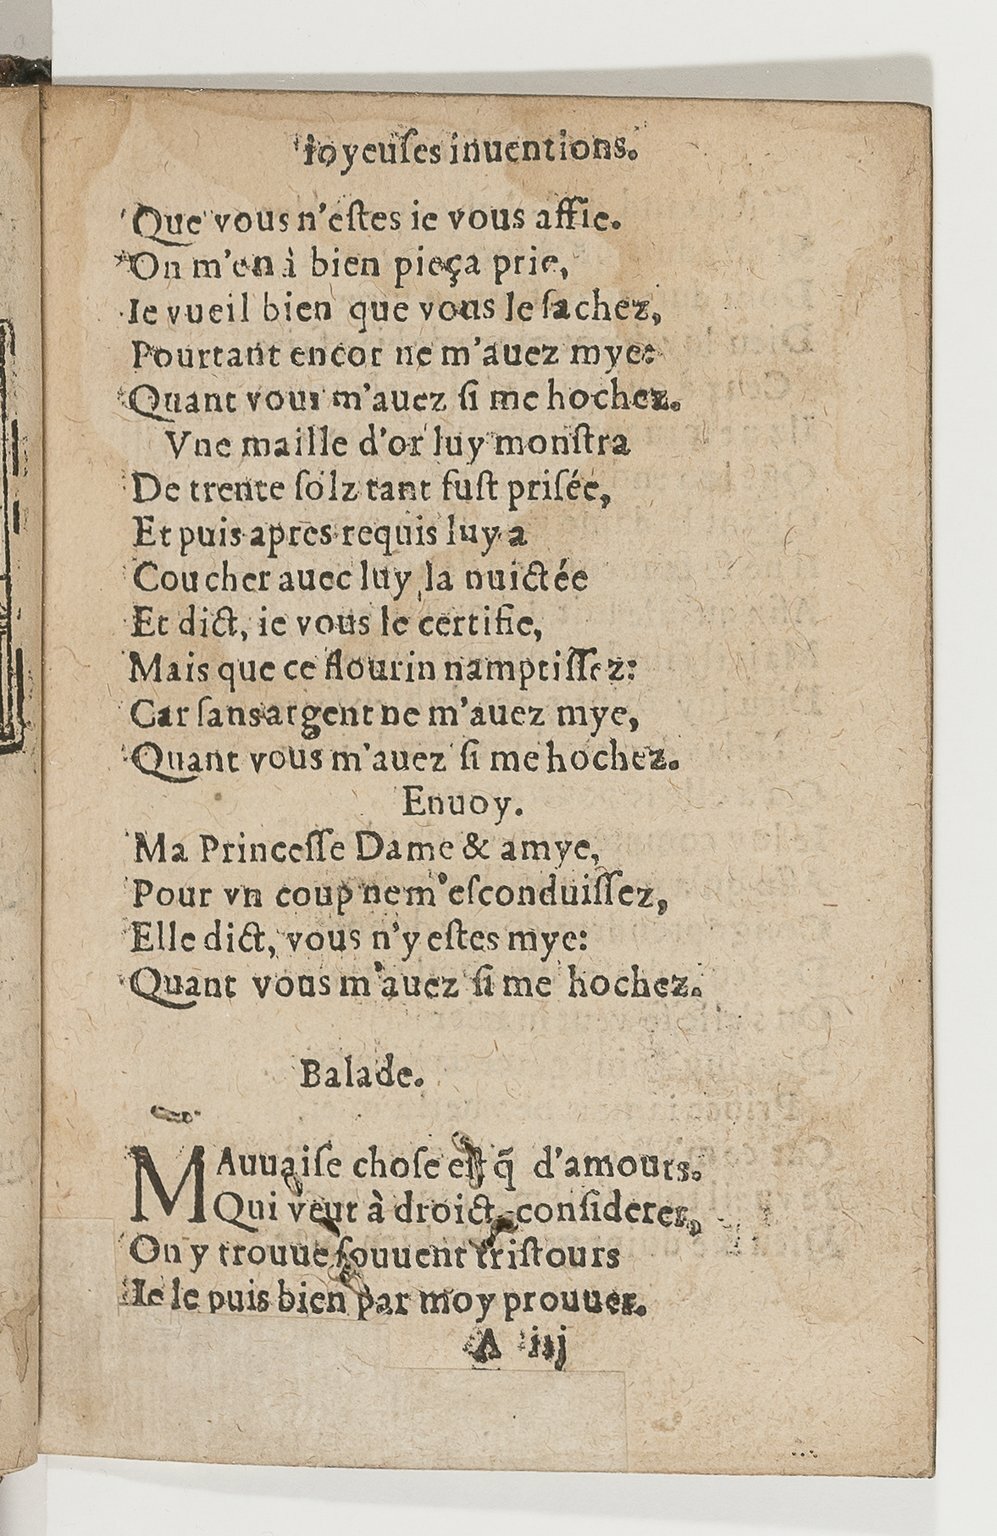 Ioyeuſes inuentions.
Que vous n'eſtes ie vous affie.
On m'en à bien pieça prie,
Ie vueil bien que vous le ſachez,
Pourtant encor ne m'auez mye:
Quant vous m'auez ſi me hochez.
Vne maille d'or luy monſtra
De trente ſolz tant fuſt priſée,
Et puis apres requis luy a
Coucher auec luy la nuictée
Et dict, ie vous le certifie,
Mais que ce flourin namptiſſez:
Car ſans argent ne m'auez mye,
Quant vous m'auez ſi me hochez.
Enuoy.
Ma Princeſſe Dame & amye,
Pour vn coup ne m'eſconduiſſez,
Elle dict, vous n'y eſtes mye:
Quant vous m'auez ſi me hochez.
Balade.
MAuuaiſe choſe eſt q̃ d'amours.
Qui veut à droict conſiderer,
On y trouue ſouuent triſtours
Ie le puis bien par moy prouuer.
A iij